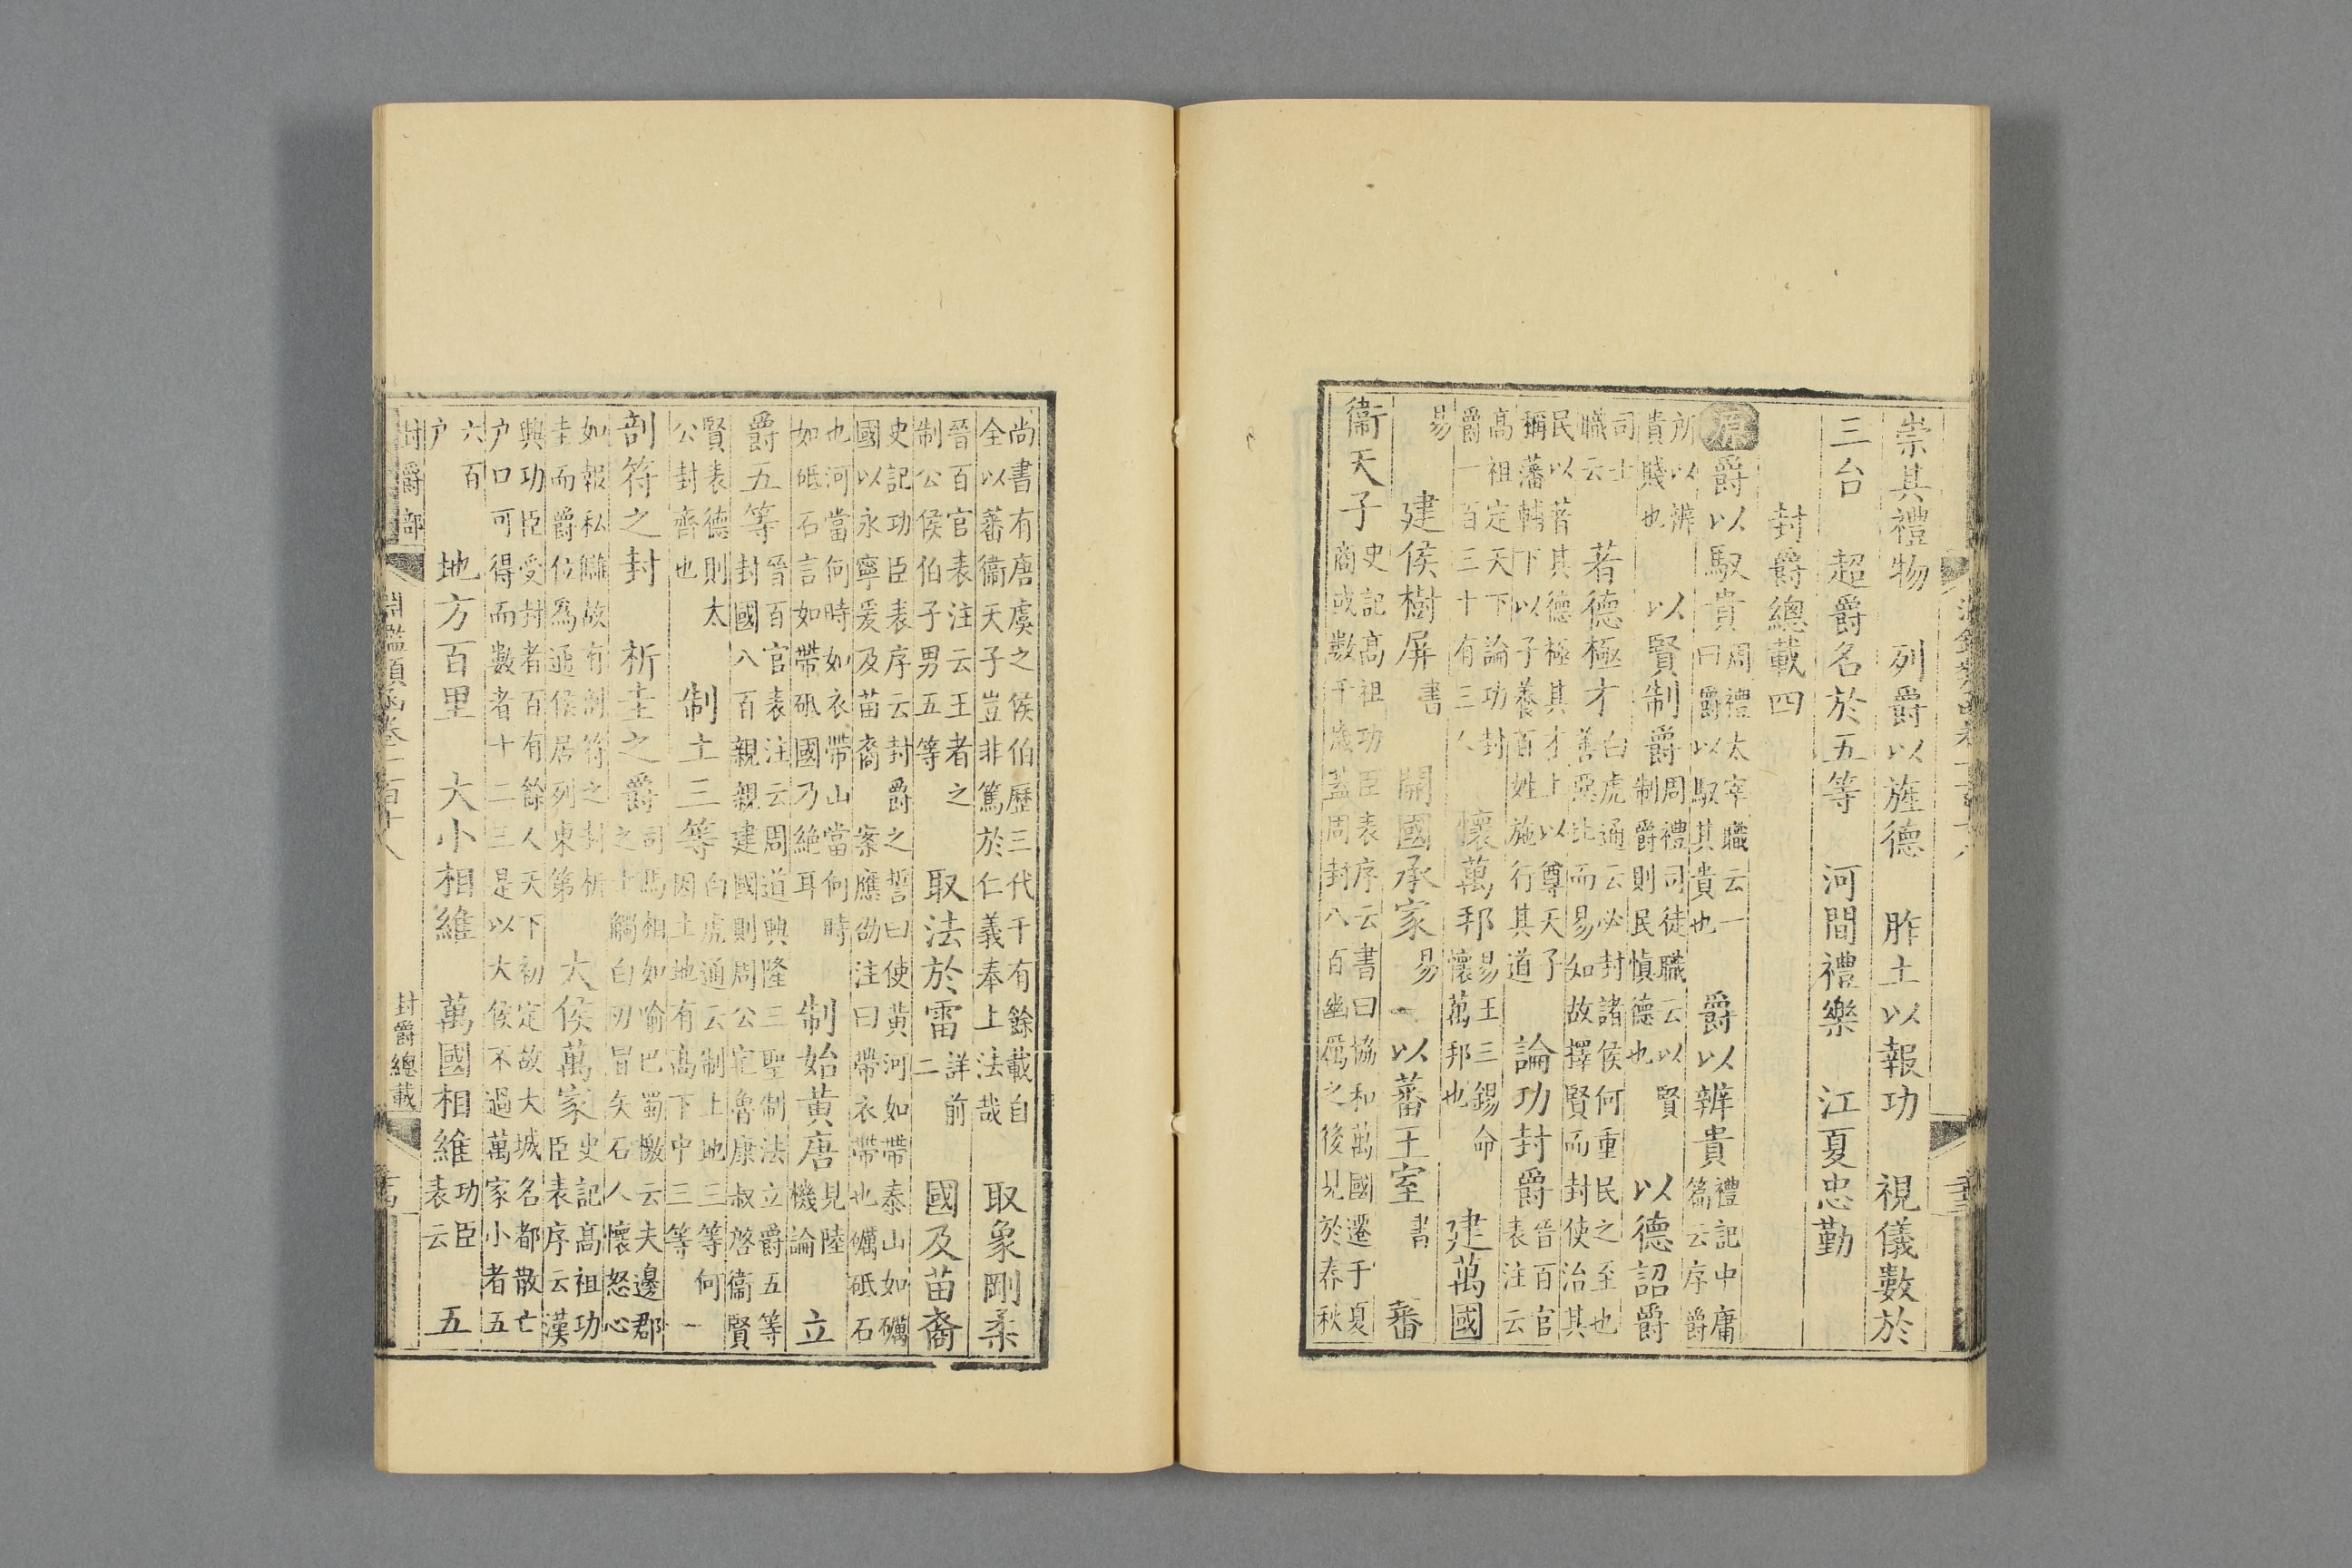 崇其禮物　列爵以旌德　胙土以報功　視儀數於
三台　超爵名於五等　河間禮樂　江夏忠勤
封爵總載四
原爵以馭貴周禮太宰職云一曰爵以馭其貴也　爵以辨貴禮記中庸篇云序爵
所以辨貴賤也　以賢制爵周禮司徒職云以賢制爵則民慎德也　以德詔爵
司士職云　若德極才白虎通云必封諸侯何重民之至也善惡比而易知故擇賢而封使治其
民以著其德極其才上以尊天子稱藩輔下以子養百姓施行其道　論功封爵晉百官表注云
高祖定天下論功封爵一百三十有三人　懷萬邦易王三錫命懷萬邦也　建萬國
易　建侯樹屏書　開國承家易　以蕃王室書　蕃
衞天子史記高祖功臣表序云書曰協和萬國遷于夏商或數千歲蓋周封八百幽厲之後見於春秋
尚書有唐虞之侯伯歷三代千有餘載自全以蕃衞天子豈非篤於仁義奉上法哉　取象剛柔
晉百官表注云王者之制公侯伯子男五等　取法於雷詳前二　國及苗裔
史記功臣表序云封爵之誓曰使黃河如帶泰山如礪國以永寧爰及苗裔　案應劭注曰帶衣帶也礪砥石
也河當何時如衣帶山當何時如砥石言如帶砥國乃絶耳　制始黃唐見陸機論　立
爵五等晉百官表注云周道興隆三聖制法立爵五等封國八百親親建國則周公宅魯康叔啓衞賢
賢表德則太公封齊也　制土三等白虎通云制土地三等何因土地有高下中三等一
剖符之封　析圭之爵司馬相如喻巴蜀檄云夫邊郡之士觸白刃冒矢石人懷怒心
如報私讎故有剖符之封析圭而爵位爲通侯居列東第　大侯萬家史記高祖功臣表序云漢
興功臣受封者百有餘人天下初定故大城名都散亡户口可得而數者十二三是以大侯不過萬家小者五
六百户　地方百里　大小相維　萬國相維功臣表云　五
封爵部
淵鑑類函卷一百十八
封爵總載